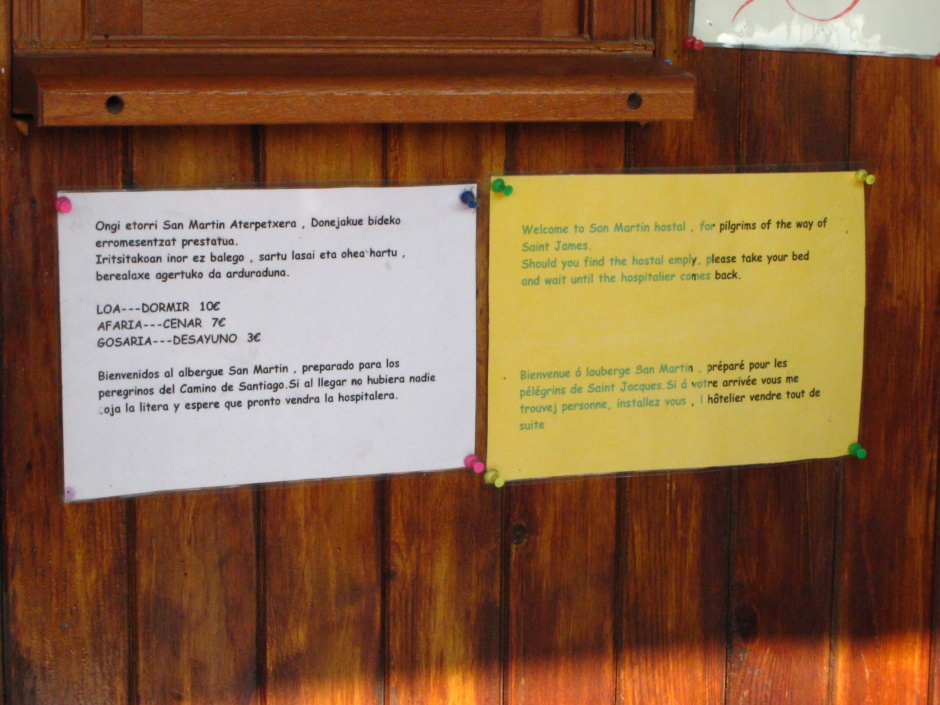 Ongi etorri San Martin Aterpetxera , Donejakue bideko
erromesentzat prestatua.
Iritsitakoan inor ez balego , sartu lasai eta ohea hartu ,
berealaxe agertuko da arduraduna.
LOA---DORMIR 10€
AFARIA---CENAR 7€
GOSARIA---DESAYUNO 3€
Bienvenidos al albergue San Martin , preparado para los
peregrinos del Camino de Santiago.Si al llegar no hubiera nadie
coja la litera y espere que pronto vendra la hospitalera.
Welcome to San Martin hostal , for pilgrims of the way of
Saint James.
Should you find the hostal emply, please take your bed
and wait until the hospitalier comes back.
Bienvenue á lauberge San Martin , préparé pour les
pélégrins de Saint Jacques.Si á votre arrivée vous me
trouvej personne, installez vous , l hôtelier vendre tout de
suite